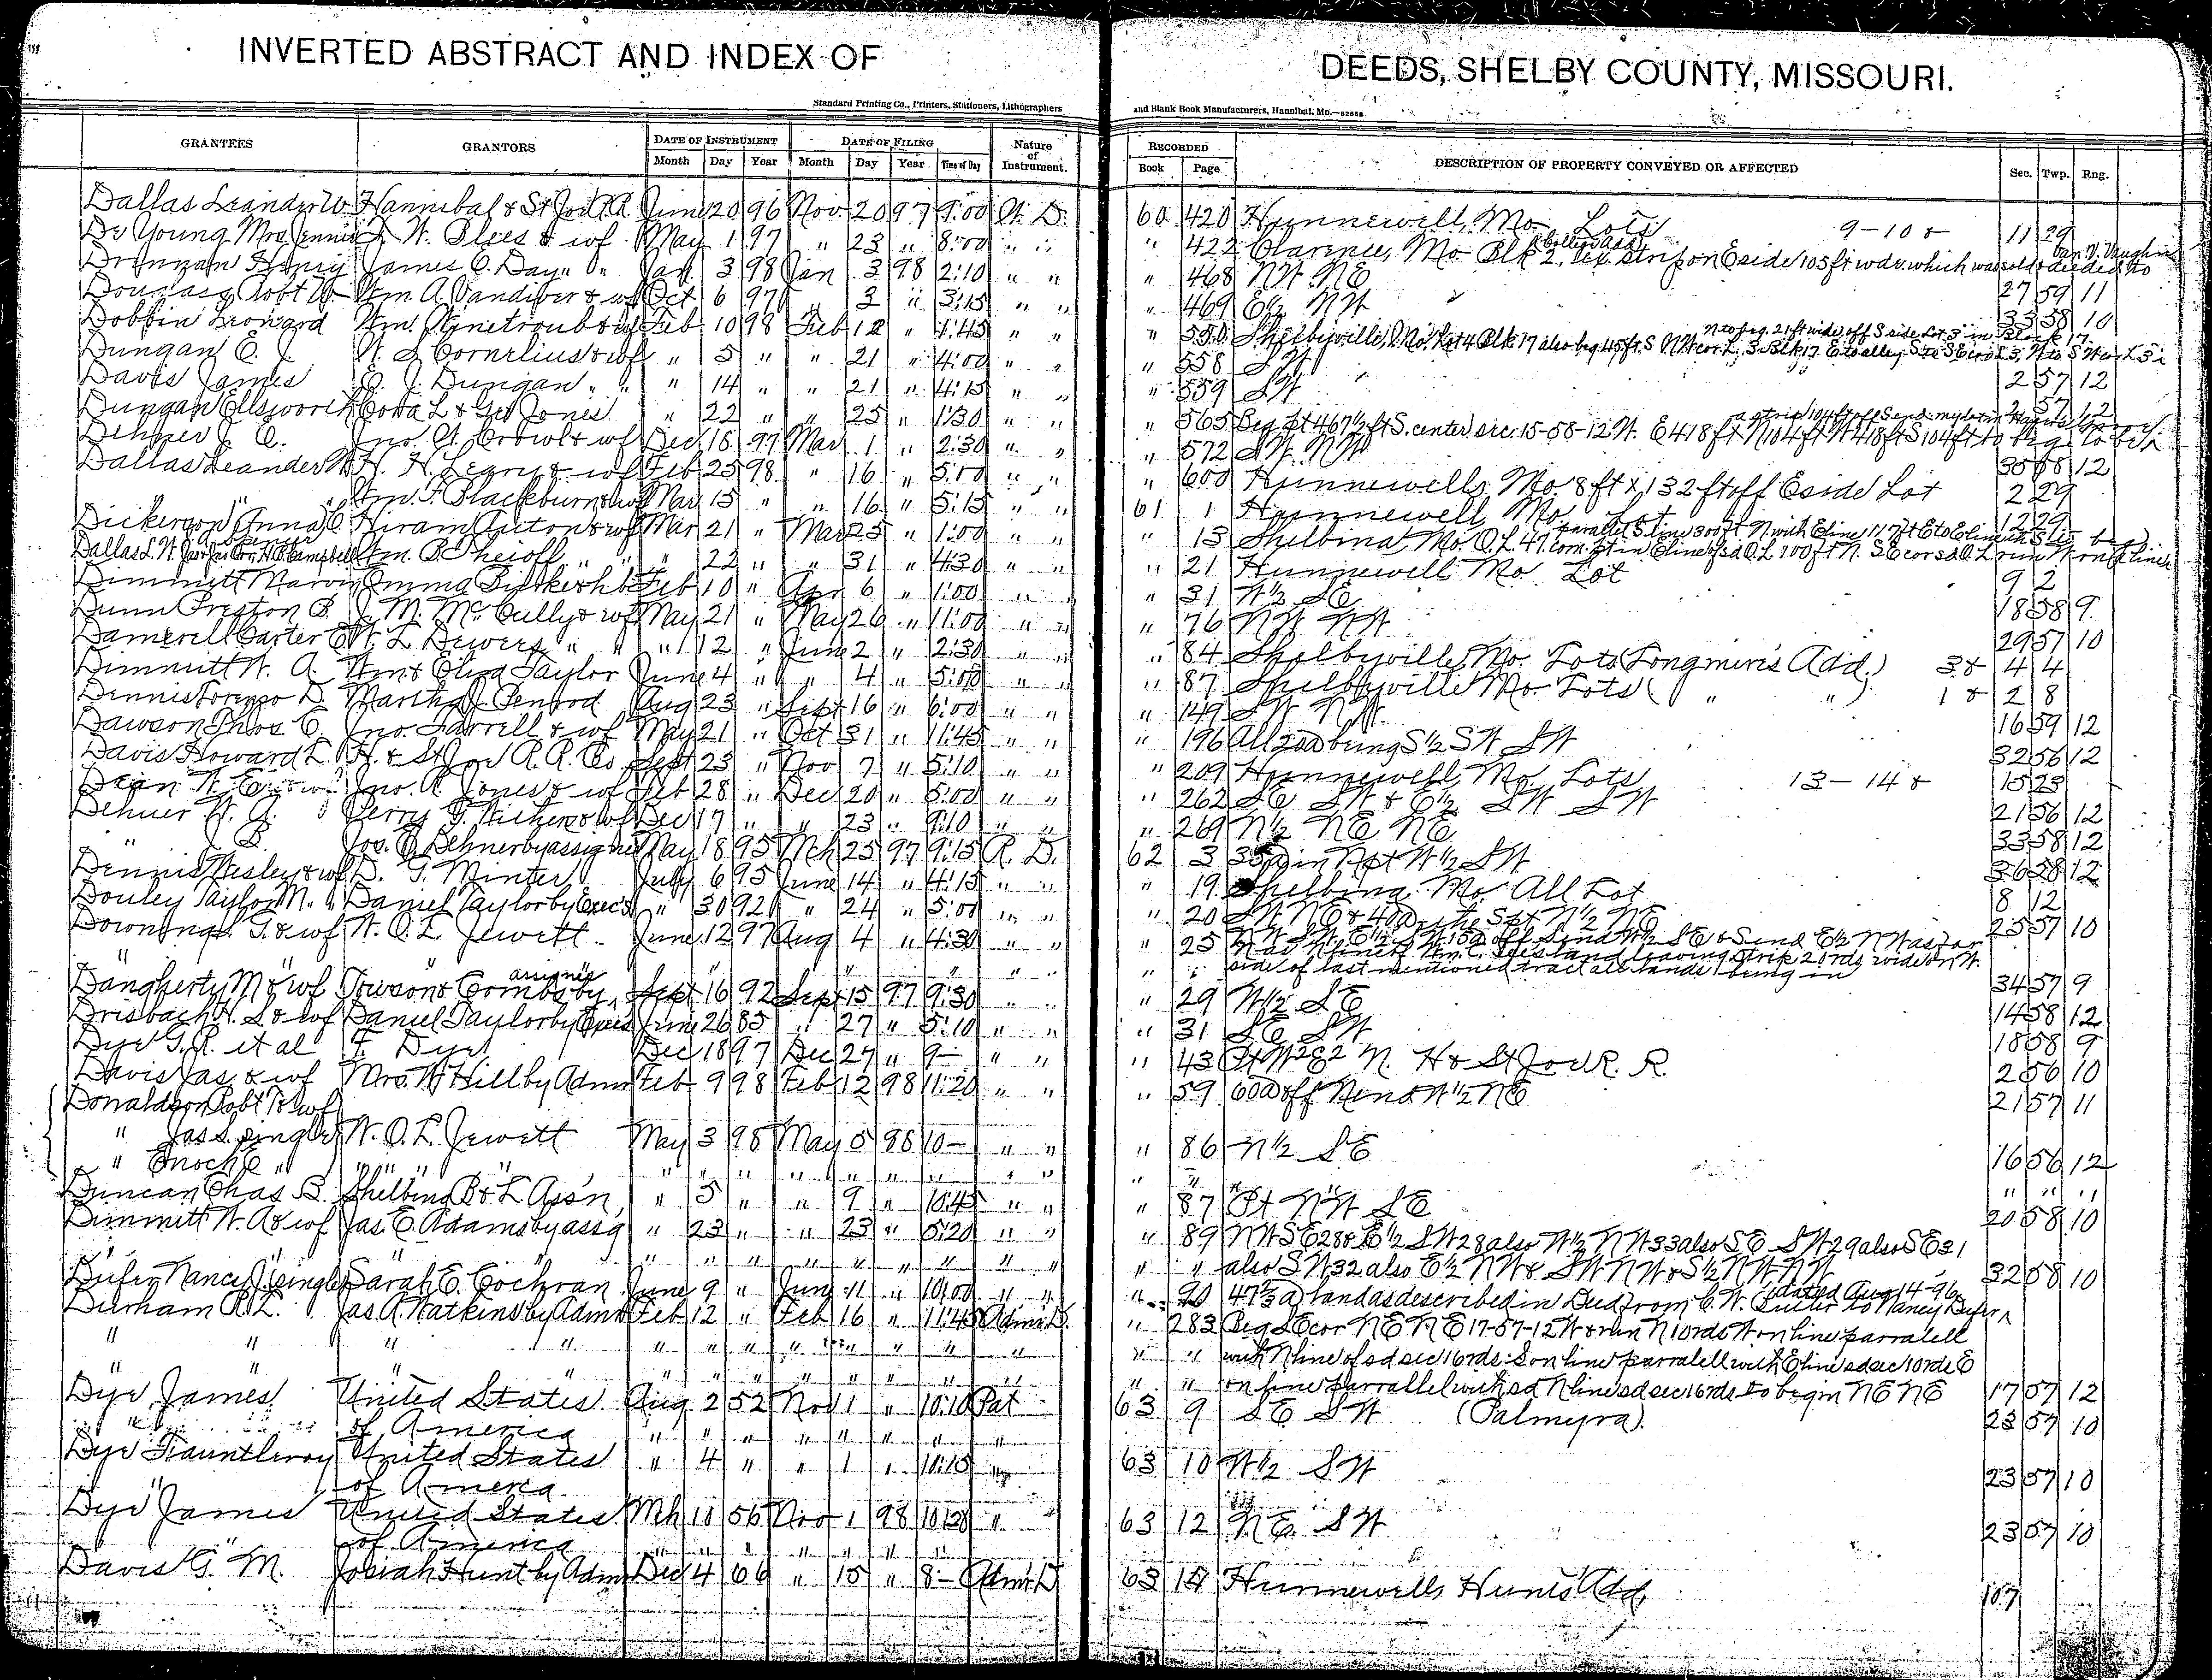 INVERTED ABSTRACT AND INDEX OF DEEDS, SHELBY COUNTY, MISSOURI.
Standard Printing Co., Printers, Stationers, Lithographers and Blank Book Manufacturers, Hannibal, Mo.
GRANTEES GRANTORS DATE OF INSTRUMENT DATE OF FILING Nature of Instrument. RECORDED DESCRIPTION OF PROPERTY CONVEYED OR AFFECTED Sec. Twp. Rng.
Month Day Year Month Day Year Time of Day Book Page
Dallas Leander W Hannibal & St Joe R.R. June 20 96 Nov 20 97 9:00 W. D. 60 420 Hunnewell, Mo. Lots 9-10 & 11 29
De Young Mrs Jennie W. Blees & wf May 1 97 " 23 " 8:00 " " " 422 Clarence, Mo Blk 2, ex. strip on E side 105 ft wd & which was sold & deeded to
Drennan Henry James C. Day " " Jan 3 98 Jan 3 98 2:10 " " " 468 NW NE 27 59 11
Douglass Robt W. Wm. A. Vandiver & wf Oct 6 97 " 3 " 3:15 " " " 469 E½ NW 33 58 10
Dobbin Leonard Wm. Winetroub & wf Feb 10 98 Feb 12 " 1:45 " " " 550 Shelbyville, Mo. Lot 4 Blk 17 also beg 45 ft S NW cor L 3 Blk 17 E to alley S to SE cor L 3 W to SW cor L 3
N to beg. 21 ft wide off S side Lot 3 in Block 17
Dungan E. J. W. S. Cornelius & wf " 5 " " 21 " 4:00 " " " 558 SW 2 57 12
Davis James E. J. Dungan " " " 14 " " 21 " 4:15 " " " 559 SW 2 57 12
Dungan Ellsworth Cora L & Geo Jones " 22 " " 25 " 1:30 " " " 565 Beg pt 467½ ft S. center sec. 15-58-12 W. E 418 ft N 104 ft W 418 ft S 104 ft to beg
Dehner J. C. Jno. W. Crowl & wf Dec 16 97 Mar 1 " 2:30 " " " 572 SW NW 30 58 12
Dallas Leander W H. H. Legry & wf Feb 25 98 " 16 " 5:00 " " " 600 Hunnewell, Mo. 8 ft x 132 ft off E side Lot 2 29
" " " Wm. T. Blackburn & wf Mar 15 " " 16 " 5:15 " " 61 1 Hunnewell Mo Lot 12 29
Dickerson Anna C. Hiram Auton & wf Mar 21 " Mar 25 " 1:00 " " " 13 Shelbina Mo. O.L. 47. com. pt in E line of sd O.L. 100 ft N. SE cor sd O.L. run N on E line
Wm. B. Theioff " " " 22 " " 31 " 4:30 " " " 21 Hunnewell Mo Lot 9 2
Dimmitt Marvin Emma Feb 10 " Apr 6 " 1:00 " " " 31 W½ SE 18 58 9
Dunn Preston B. J. M. McCully & wf May 21 " May 26 " 11:00 " " " 76 NW NW 29 57 10
Damerell Carter C W. L. Dewers " " " 12 " June 2 " 2:30 " " " 84 Shelbyville, Mo. Lots (Longmire's Add.) 3 & 4 4
Dimmitt W. A. Wm & Eliza Taylor June 4 " " 4 " 5:00 " " " 87 Shelbyville Mo. Lots ( " " ) 1 & 2 8
Dennis Lorenzo D. Martha J. Penrod Aug 23 " Sept 16 " 6:00 " " " 149 SW NW 16 59 12
Dawson Thos C. Jno. Farrell & wf May 21 " Oct 31 " 11:45 " " " 196 All 20a being S½ SW SW 32 56 12
Davis Howard L. H. & St Joe R.R. Co. Sept 23 " Nov 7 " 5:10 " " " 209 Hunnewell, Mo. Lots 13-14 & 15 23
Dean W. E. & wf Jno. R. Jones & wf Feb 28 " Dec 20 " 5:00 " " " 262 SE SW & E½ SW SW 21 56 12
Dehner W. G. Perry T. & wf Dec 17 " " 23 " 9:10 " " " 269 N½ NE NE 33 58 12
" B. Jos. C. Dehner by assignee May 18 95 Mh 25 97 9:15 R. D. 62 3 35a in N pt W½ SW 36 58 12
Dennis Wesley & wf D. G. Minter July 6 95 June 14 " 4:15 " " " 19 Shelbina Mo. All Lot 8 12
Douley Taylor M. " Daniel Taylor by Exec's " 30 92 " 24 " 5:00 " " " 20 SW NE & 40a the S pt N½ NE 25 57 10
Downing T. & wf W. O. L. Jewett June 12 97 Aug 4 " 4:30 " " " 25
" " " " side of last mentioned tract all lands being in 34 57 9
Daugherty M & wf Towson & Combs by assignee Sept 16 92 Sept 15 97 9:30 " " " 29 W½ SE 14 58 12
Drisbach H. S & wf Daniel Taylor by Exec's June 26 85 " 27 " 5:10 " " " 31 SE SW 18 58 9
Dye G. R. et al F. Dye Dec 18 97 Dec 27 " 9- " " " 43 Pt W2 E2 N. H & St Joe R. R. 2 56 10
Davis Jas & wf Mrs. Hill by Admr Feb 9 98 Feb 12 98 11:20 " " " 59 60a off N end W½ NE 21 57 11
Donaldson Robt T & wf
" Jas S. single W. O. L. Jewett May 3 98 May 5 98 10- " " " 86 N½ SE 16 56 12
" Enoch E " " " " " " " " " " " " " " " " " " "
Duncan Chas. B. Shelbina B & L Ass'n, " 5 " " 9 " 10:45 " " " 87 Pt NW SE 20 58 10
Dimmitt W. A & wf Jas. E. Adams by assg " 23 " " 23 " 5:20 " " " 89 NW SE 28 & E½ SW 28 also W½ NW 33 also SE SW 29 also SE 31
" " " " " " " " " " " " " " " also SW 32 also E½ NW & SW NW & S½ NW NW 32 58 10
Dufer Nancy J. single Sarah E. Cochran June 9 " June 11 " 10:00 " " " 90 47⅔ a land as described in Deed from C. W. to Nancy Dufer dated Aug 14-96
Durham R. L. Jas. A. Watkins by Admr Feb 12 " Feb 16 " 11:45 Admr D. " 283 Beg SE cor NE NE 17-57-12 W & run N 10 rds W on line parralell
" " " " " " " " " " " " " " with N line of sd sec 16 rds. S on line parralell with E line sd sec 10 rds E
" " " " " " " " " " " " " " on line parrallel with sd N line sd sec 16 rds to begin NE NE 17 57 12
Dye James United States Aug 2 52 Nov 1 " 10:10 Pat 63 9 SE SW (Palmyra). 23 57 10
" of America " " " " " " " "
Dye Fauntleroy United States " 4 " " 1 " 10:15 " 63 10 W½ SW 23 57 10
" of America
Dye James United States Mh 10 56 Nov 1 98 10:20 " 63 12 NE SW 23 57 10
" of America " " " " " " "
Davis G. M. Josiah Hunt by Admr Dec 4 66 " 15 " 8- Admr D 63 14 Hunnewell, Hunts Add. 10 7